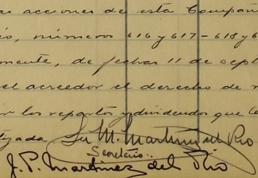 acciones de esta Compañ
números 616 y 617-618 y 6
mente, de fechas 11 de sept
el acreedor el derecho de
los repartos y dividendos que
M. Martinez del Rio
Secretario.
J. P. Martinez del Rio